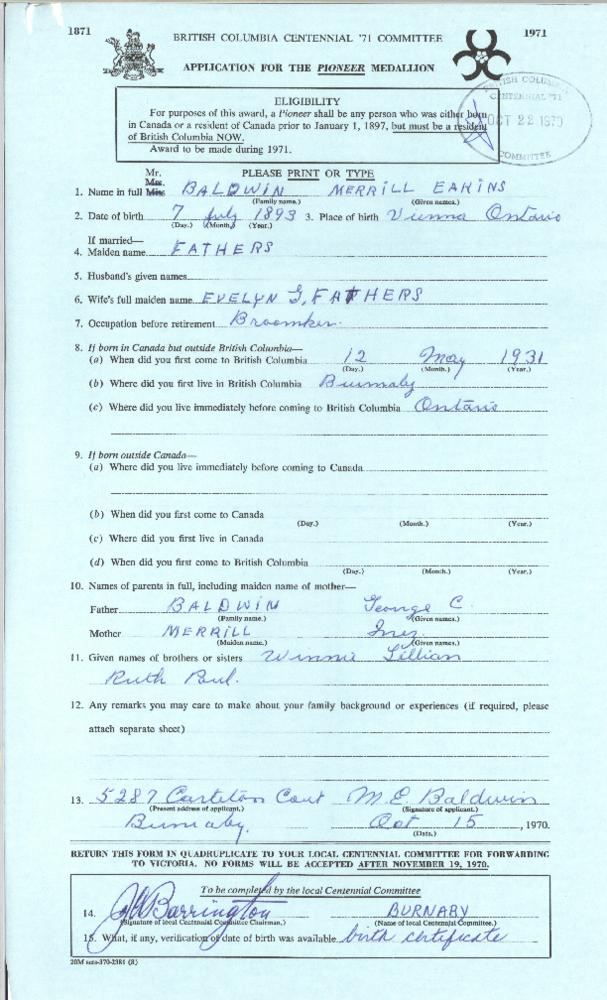 1871 BRITISH COLUMBIA CENTENNIAL '71 COMMITTEE 1971
APPLICATION FOR THE PIONEER MEDALLION
BRITISH COLUMBIA
CENTENNIAL '71
OCT 22 1970
COMMITTEE
ELIGIBILITY
For purposes of this award, a Pioneer shall be any person who was either born
in Canada or a resident of Canada prior to January 1, 1897, but must be a resident
of British Columbia NOW.
Award to be made during 1971.
PLEASE PRINT OR TYPE
Mr.
Mrs.
1. Name in full Miss BALDWIN MERRILL EAKINS
(Family name.) (Given names.)
2. Date of birth 7 July 1893 3. Place of birth Vienna Ontario
(Day.) (Month.) (Year.)
If married—
4. Maiden name FATHERS
5. Husband's given names
6. Wife's full maiden name EVELYN G. FATHERS
7. Occupation before retirement
8. If born in Canada but outside British Columbia—
(a) When did you first come to British Columbia 12 May 1931
(Day.) (Month.) (Year.)
(b) Where did you first live in British Columbia Burnaby
(c) Where did you live immediately before coming to British Columbia Ontario
9. If born outside Canada—
(a) Where did you live immediately before coming to Canada
(b) When did you first come to Canada
(Day.) (Month.) (Year.)
(c) Where did you first live in Canada
(d) When did you first come to British Columbia
(Day.) (Month.) (Year.)
10. Names of parents in full, including maiden name of mother—
Father BALDWIN George C.
(Family name.) (Given names.)
Mother MERRILL Inez
(Maiden name.) (Given names.)
11. Given names of brothers or sisters Winnie Lillian
Ruth Paul.
12. Any remarks you may care to make about your family background or experiences (if required, please
attach separate sheet)
13. 5287 Carleton Court M. E. Baldwin
(Present address of applicant.) (Signature of applicant.)
Burnaby. Oct 15, 1970.
(Date.)
RETURN THIS FORM IN QUADRUPLICATE TO YOUR LOCAL CENTENNIAL COMMITTEE FOR FORWARDING
TO VICTORIA. NO FORMS WILL BE ACCEPTED AFTER NOVEMBER 19, 1970.
To be completed by the local Centennial Committee
14. Barrington BURNABY
(Signature of local Centennial Committee Chairman.) (Name of local Centennial Committee.)
15. What, if any, verification of date of birth was available birth certificate